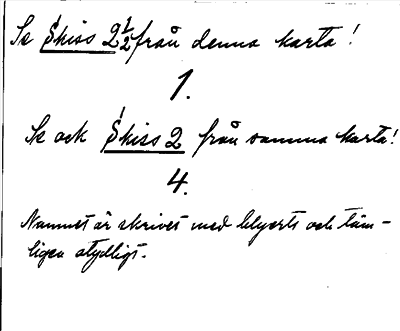 Se Skiss 2 1/2 från denna karta!
1.
Se ock Skiss 2 från samma karta!
4.
Namnet är skrivet med blyerts och täm-
ligen otydligt.